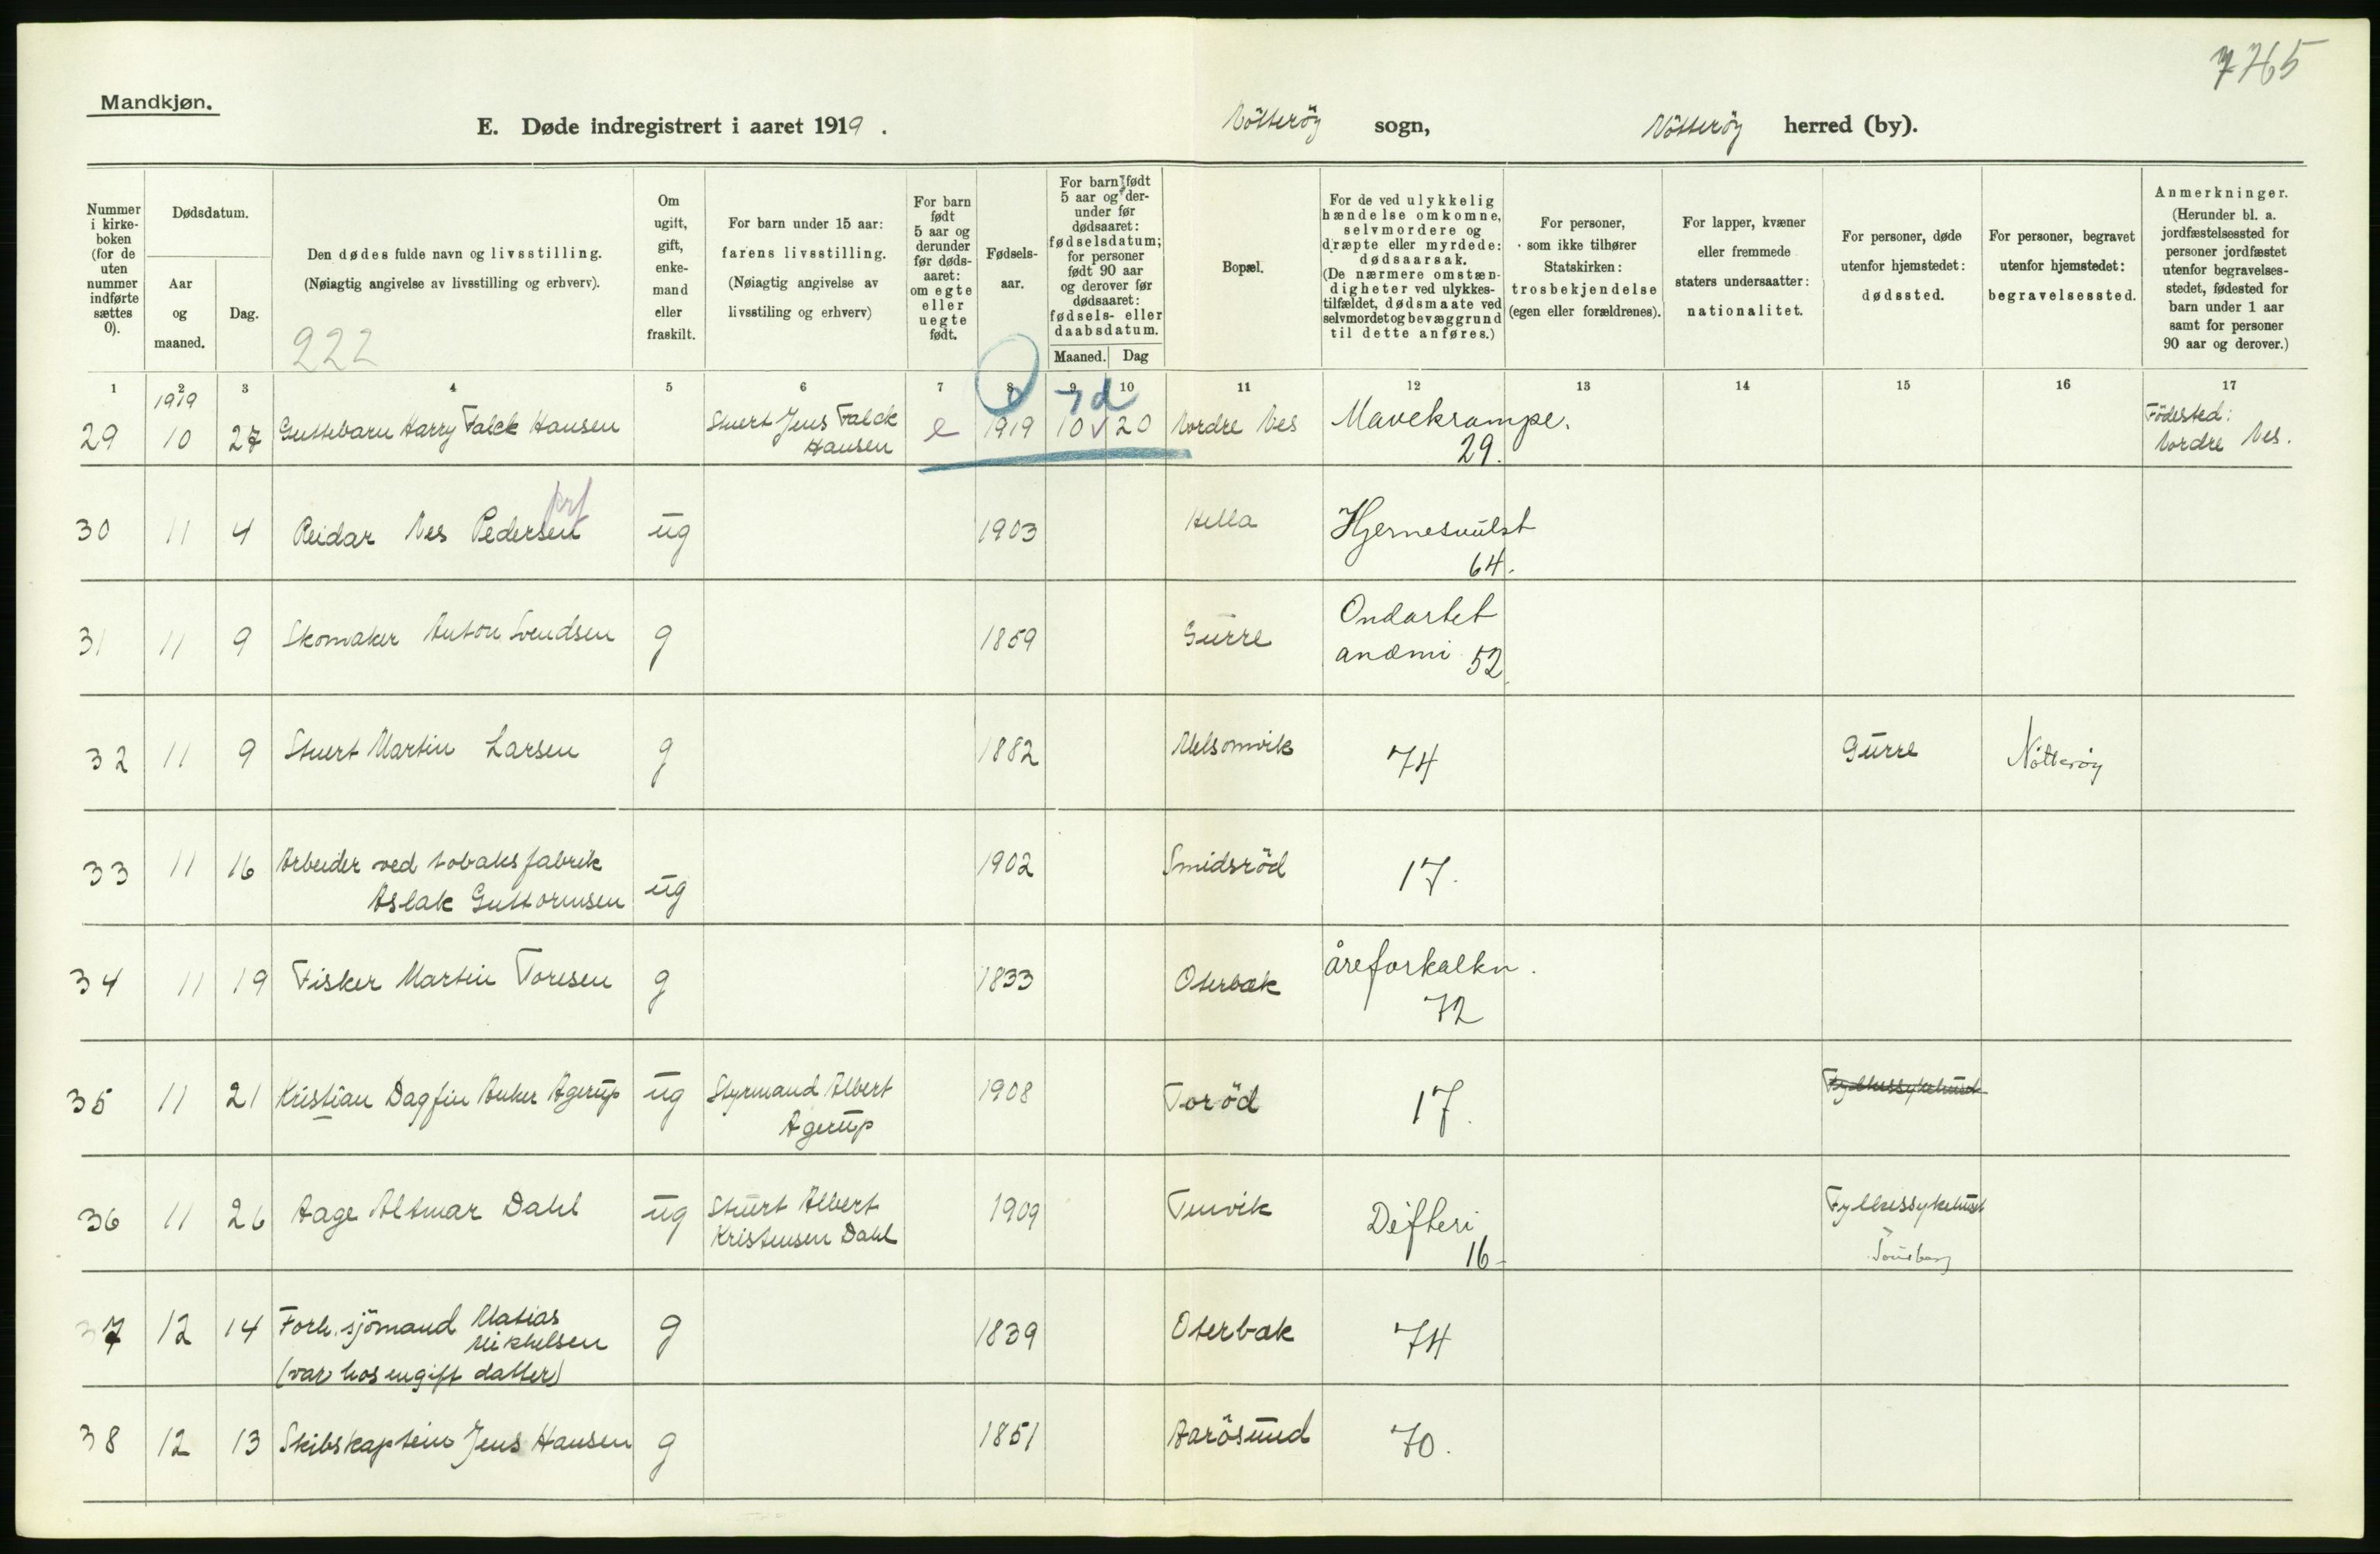 7765
Mandkjøn.
E. Døde indregistrert i aaret 1919. Nötteröy sogn, Nötteröy herred (by).
Nummer i kirke-boken (for de uten nummer indførte sættes 0).
Dødsdatum.
Aar og maaned.
Dag.
Den dødes fulde navn og livsstilling.
(Nøiagtig angivelse av livsstilling og erhverv).
222
Om ugift, gift, enke-mand eller fraskilt.
For barn under 15 aar:
farens livsstilling.
(Nøiagtig angivelse av livsstiling og erhverv)
For barn født 5 aar og derunder før døds-aaret: om egte eller uegte født.
Fødsels-aar.
For barn født 5 aar og der-under før dødsaaret: fødselsdatum; for personer født 90 aar og derover før dødsaaret: fødsels- eller daabsdatum.
Maaned. Dag
Bopæl.
For de ved ulykkelig hændelse omkomne, selvmordere og dræpte eller myrdede: dødsaarsak.
(De nærmere omstæn-digheter ved ulykkes-tilfældet, dødsmaate ved selvmordet og bevæggrund til dette anføres.)
For personer, som ikke tilhører Statskirken: trosbekjendelse (egen eller forældrenes).
For lapper, kvæner eller fremmede staters undersaatter: nationalitet.
For personer, døde utenfor hjemstedet: dødssted.
For personer, begravet utenfor hjemstedet: begravelsessted.
Anmerkninger.
(Herunder bl. a. jordfæstelsessted for personer jordfæstet utenfor begravelses-stedet, fødested for barn under 1 aar samt for personer 90 aar og derover.)
1 2 3 4 5 6 7 8 9 10 11 12 13 14 15 16 17
1919 7d
29 10 27 Guttebarn Harry Falck Hansen Stuert Jens Falck Hansen e 1919 10 20 Nordre Nes Mavekrampe. 29. Födested: Nordre Nes.
30 11 4 Reidar Nes Pedersen ug 1903 Hella Hjernesvulst 64.
31 11 9 Skomaker Anton Svendsen g 1859 Gurre Ondartet anæmi 52
32 11 9 Stuert Martin Larsen g 1882 Melsomvik 74 Gurre Nötteröy
33 11 16 Arbeider ved tobaksfabrik Aslak Guttormsen ug 1902 Smidsröd 17.
34 11 19 Fisker Martin Toresen g 1833 Oterbæk åreforkalkn. 72
35 11 21 Kristian Dagfin Anker Agerup ug Styrmand Albert Agerup 1908 Toröd 17. Fylkessykehuset
36 11 26 Aage Altmar Dahl ug Stuert Albert Kristensen Dahl 1909 Tenvik Difteri 16- Fylkessykehuset Tönsberg
37 12 14 Forh. sjömand Matias Mikkelsen (var hos en gift datter) g 1839 Oterbæk 74
38 12 13 Skibskaptein Jens Hansen g 1851 Aarösund 70.